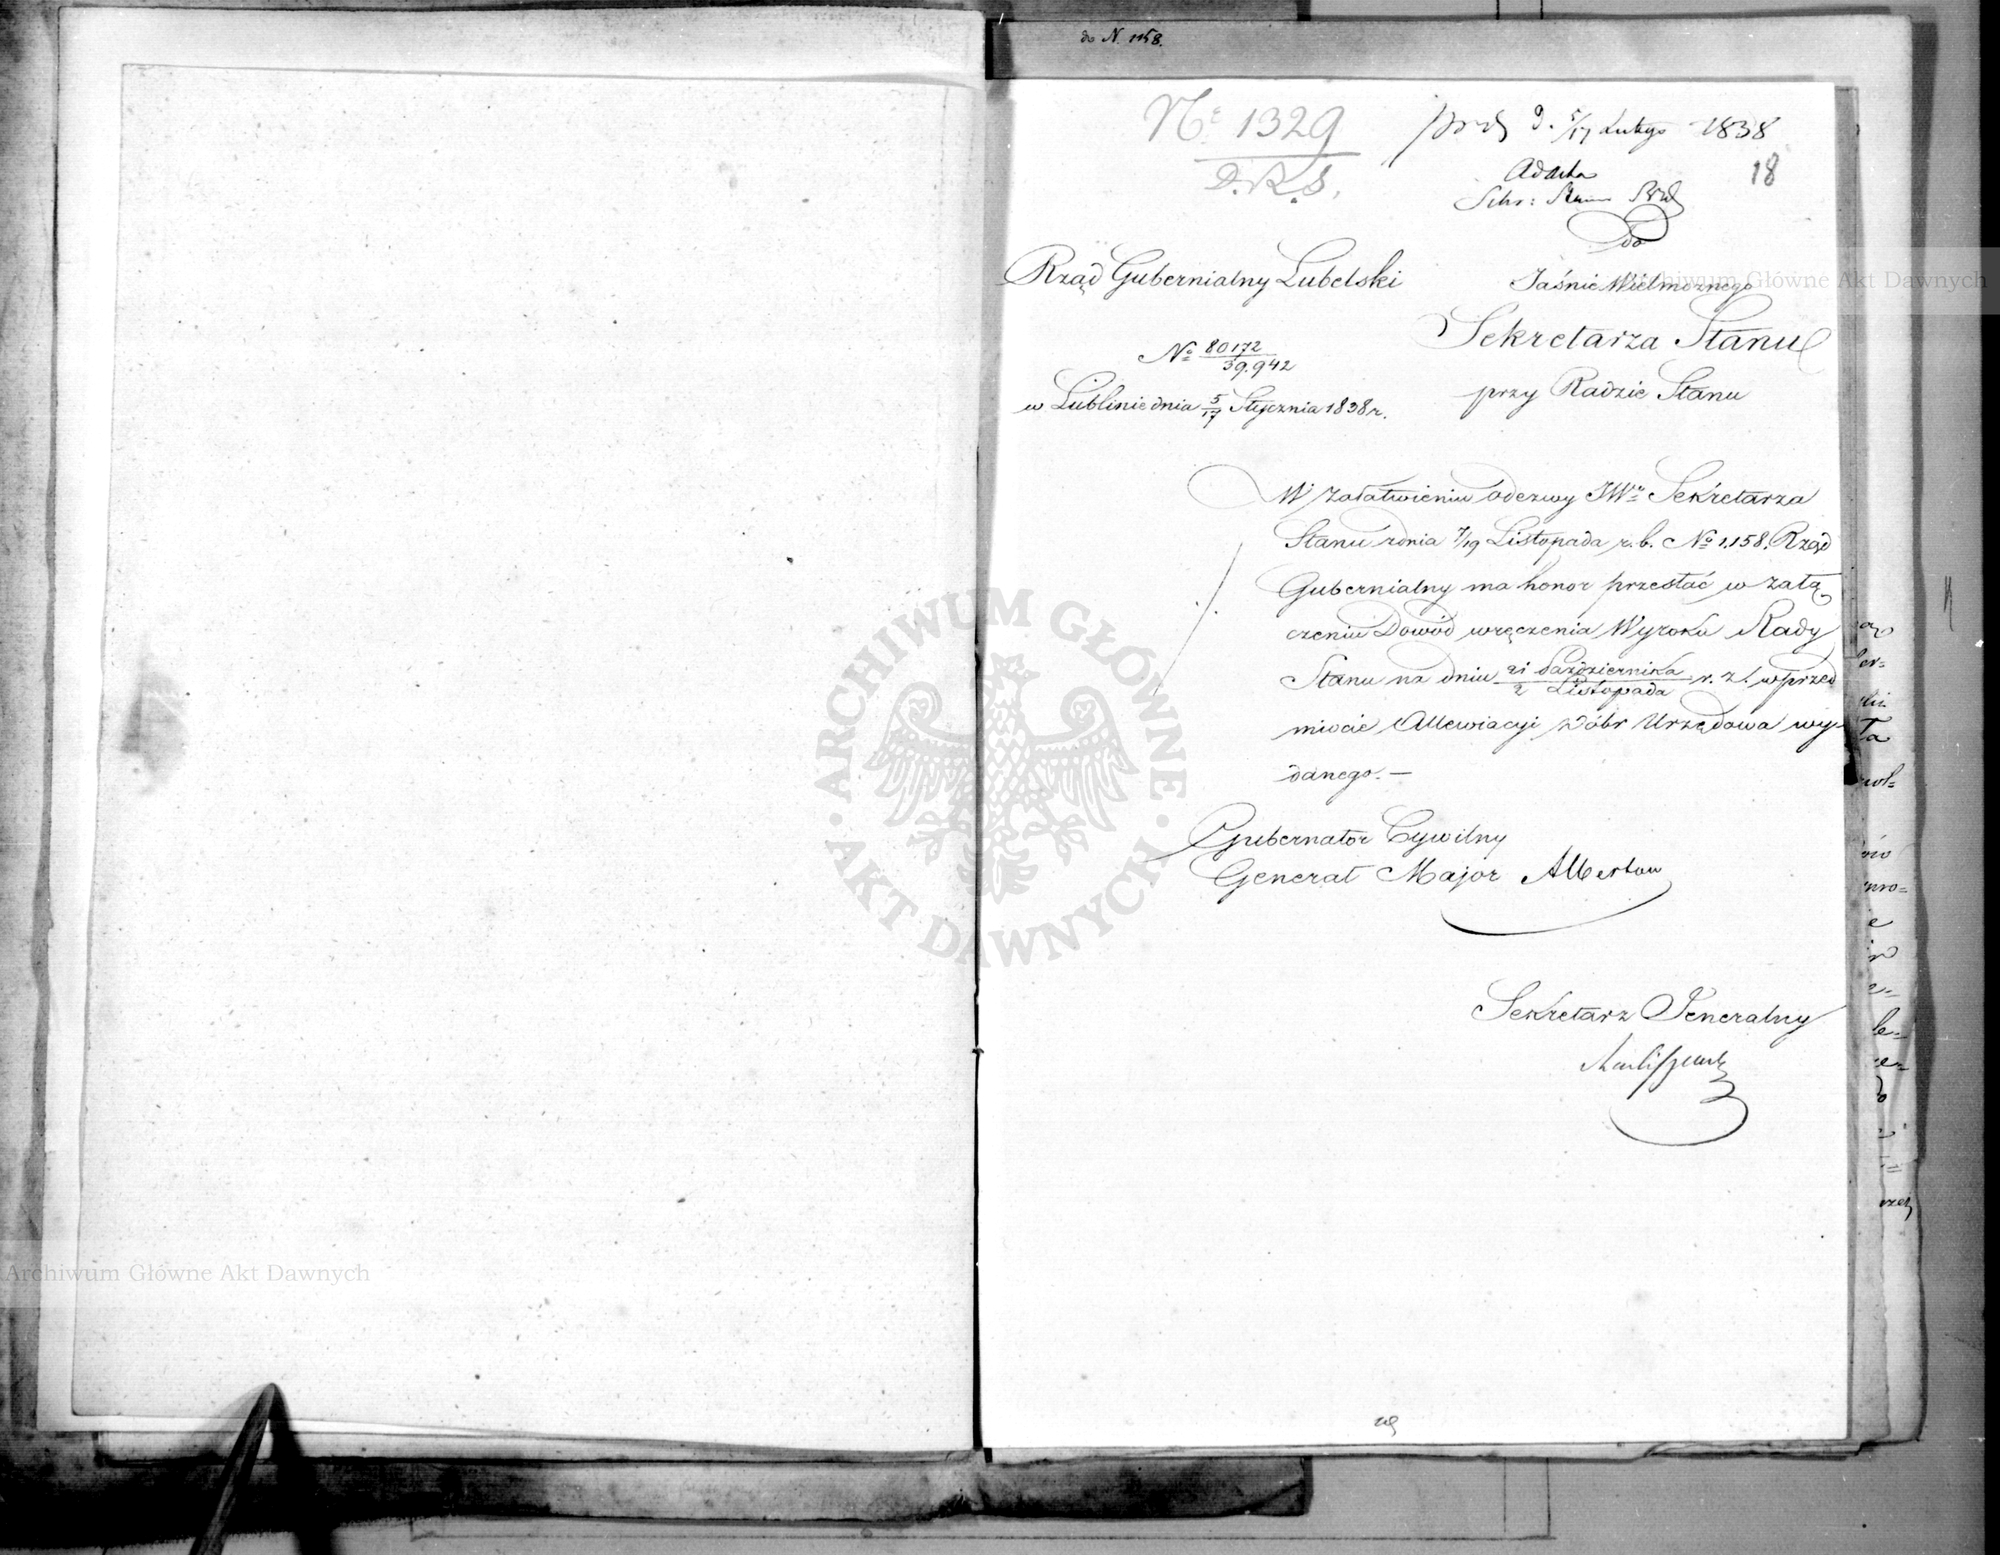 do N. 1158.
No 1329
D.R.S.
d. 5/17 Lutego 1838
18
Ad Acta
do
Rząd Gubernialny Lubelski
Jaśnie Wielmożnego
Sekretarza Stanu
przy Radzie Stanu
No 80172/39.942
w Lublinie dnia 5/17 Stycznia 1838 r.
W załatwieniu odezwy JWo Sekretarza
Stanu z dnia 7/19 Listopada r. b. No 1,158. Rząd
Gubernialny ma honor przesłać w załą
czeniu Dowód wręczenia Wyroku Rady
Stanu na dniu 21 Października/2 Listopada r. z. w przed
miocie Allewiacyi z dóbr Urzędowa wy-
danego. —
Gubernator Cywilny
Generał Major Albertow
Sekretarz Generalny
Archiwum Główne Akt Dawnych
Archiwum Główne Akt Dawnych
ARCHIWUM GŁÓWNE · AKT DAWNYCH ·